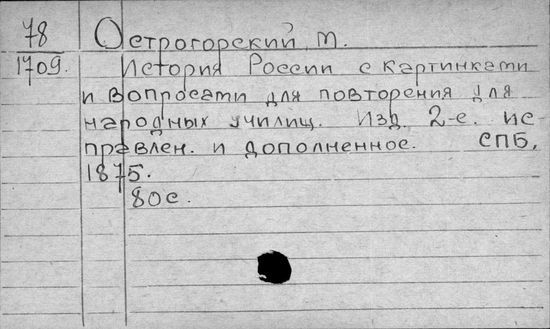 78 Острогорский М.
1709. История России с картинками
и вопросами для повторения для
народных училищ. Изд. 2-е. ис
правлен. и дополненное. СПБ,
1875.
80с.